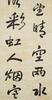 望晴空雨
彩虹人烟寒